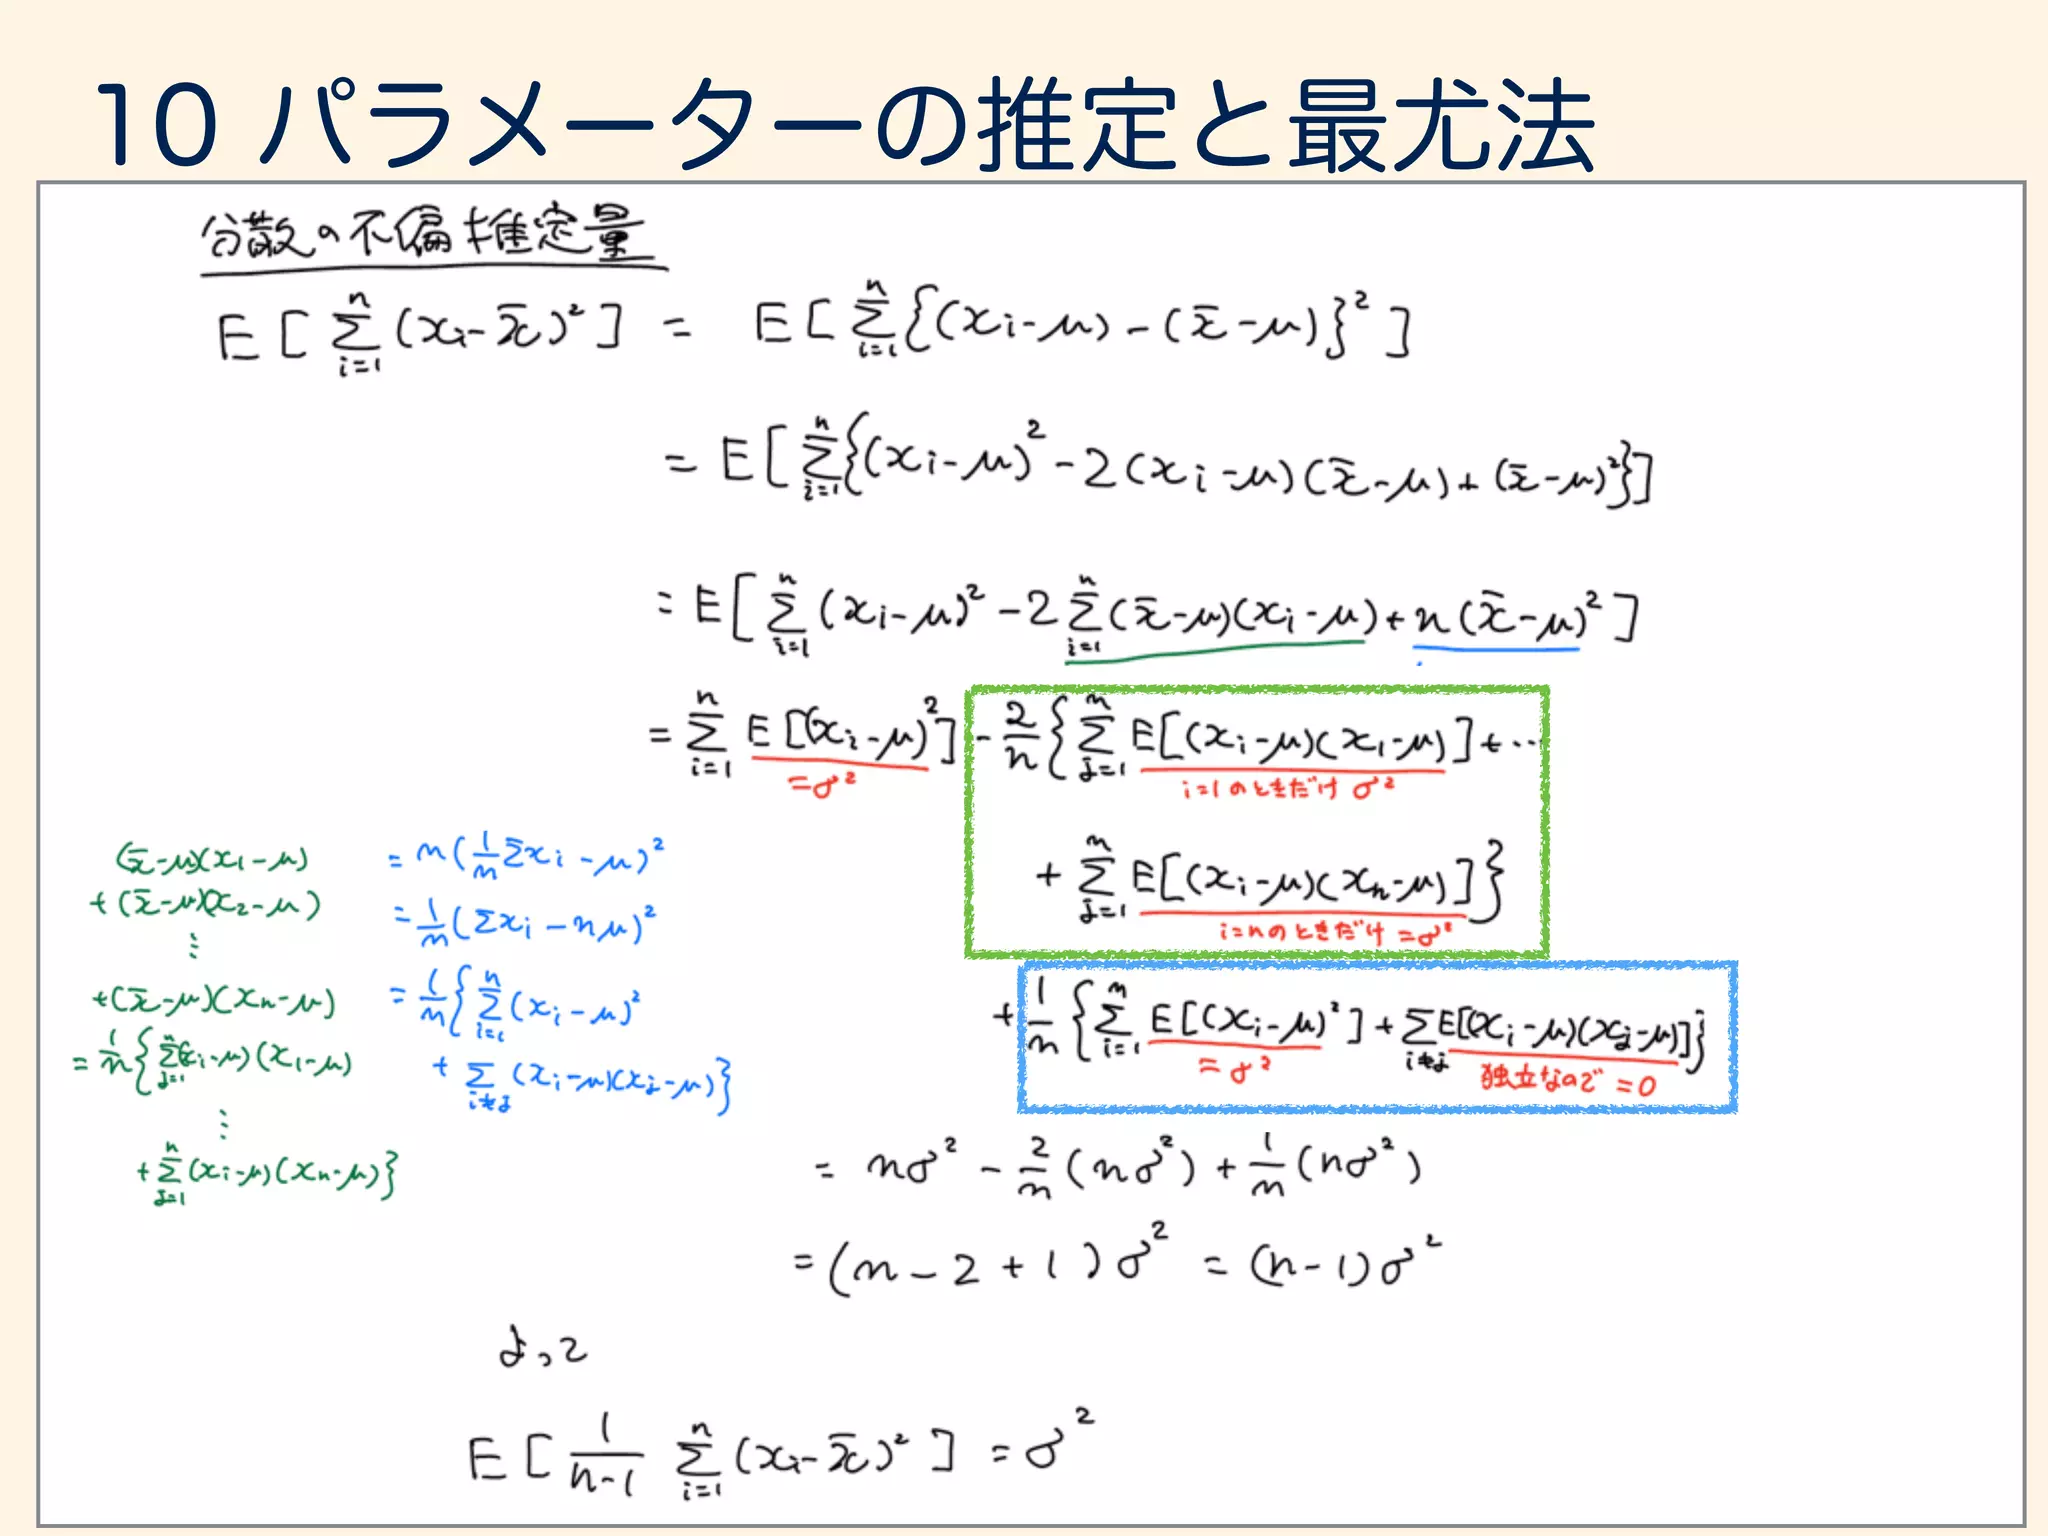 10 パラメーターの推定と最尤法
分散の不偏推定量
E[∑_{i=1}^{n}(x_i-x̄)²] = E[∑_{i=1}^{n}{(x_i-μ)-(x̄-μ)}²]
= E[∑_{i=1}^{n}{(x_i-μ)²-2(x_i-μ)(x̄-μ)+(x̄-μ)²}]
= E[∑_{i=1}^{n}(x_i-μ)²-2∑_{i=1}^{n}(x̄-μ)(x_i-μ)+n(x̄-μ)²]
= ∑_{i=1}^{n}E[(x_i-μ)²] - 2/n{∑_{j=1}^{n}E[(x_i-μ)(x_1-μ)]+…
=σ² i=1のときだけ σ²
+ ∑_{j=1}^{n}E[(x_i-μ)(x_n-μ)]}
i=nのときだけ =σ²
+ 1/n{∑_{i=1}^{n}E[(x_i-μ)²]+∑_{i≠j}E[(x_i-μ)(x_j-μ)]}
=σ² 独立なので =0
(x̄-μ)(x_1-μ)
+(x̄-μ)(x_2-μ)
⋮
+(x̄-μ)(x_n-μ)
= 1/n{∑_{j=1}^{n}(x_i-μ)(x_1-μ)
⋮
+∑_{j=1}^{n}(x_i-μ)(x_n-μ)}
= n(1/n ∑x_i-μ)²
= 1/n(∑x_i-nμ)²
= 1/n{∑_{i=1}^{n}(x_i-μ)²
+ ∑_{i≠j}(x_i-μ)(x_j-μ)}
= nσ² - 2/n(nσ²) + 1/n(nσ²)
= (n-2+1)σ² = (n-1)σ²
よって
E[1/(n-1) ∑_{i=1}^{n}(x_i-x̄)²] = σ²